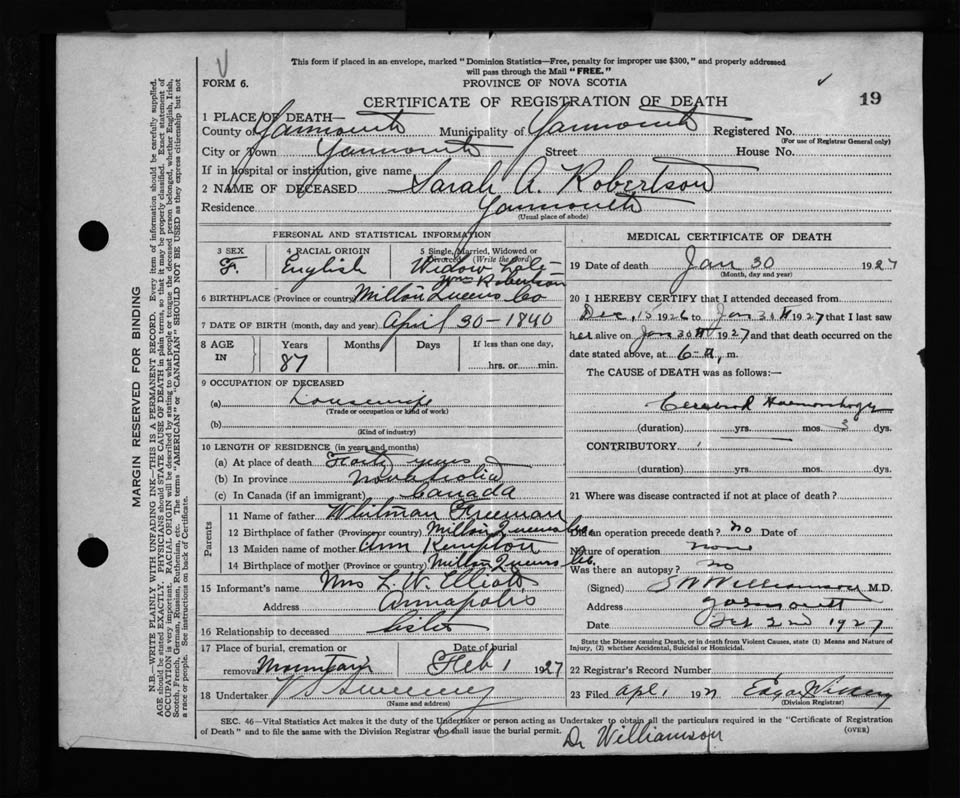 This form if placed in an envelope, marked "Dominion Statistics—Free, penalty for improper use $300," and properly addressed
will pass through the Mail "FREE."
FORM 6.
PROVINCE OF NOVA SCOTIA
CERTIFICATE OF REGISTRATION OF DEATH
19
1 PLACE OF DEATH—
County of Yarmouth Municipality of Yarmouth Registered No.
(For use of Registrar General only)
City or Town Yarmouth Street House No.
If in hospital or institution, give name
2 NAME OF DECEASED Sarah A. Robertson
Residence Yarmouth
(Usual place of abode)
PERSONAL AND STATISTICAL INFORMATION
3 SEX
F.
4 RACIAL ORIGIN
English
5 Single, Married, Widowed or
Divorced (Write the word)
Widow
Wm Robertson
6 BIRTHPLACE (Province or country) Milton Queens Co
7 DATE OF BIRTH (month, day and year) April 30—1840
8 AGE
IN
Years
87
Months
Days
If less than one day,
hrs. or min.
9 OCCUPATION OF DECEASED
(a) Housewife
(Trade or occupation or kind of work)
(b)
(Kind of industry)
10 LENGTH OF RESIDENCE (in years and months)
(a) At place of death years
(b) In province Nova Scotia
(c) In Canada (if an immigrant) Canada
Parents
11 Name of father Whitman Freeman
12 Birthplace of father (Province or country) Milton Queens Co.
13 Maiden name of mother Ann Kempton
14 Birthplace of mother (Province or country) Milton Queens Co.
15 Informant's name Mrs L. W. Elliott
Address Annapolis
16 Relationship to deceased Sister
17 Place of burial, cremation or
removal Mountain
Date of burial
Feb 1 1927
18 Undertaker V S Sweeney
(Name and address)
MEDICAL CERTIFICATE OF DEATH
19 Date of death Jan 30 1927
(Month, day and year)
20 I HEREBY CERTIFY that I attended deceased from
Dec, 15 1926 to Jan 30th 1927 that I last saw
her alive on Jan 30th 1927 and that death occurred on the
date stated above, at 6 A, m.
The CAUSE of DEATH was as follows:—
Cerebral Haemorrhage
(duration) yrs. mos. 3 dys.
CONTRIBUTORY
(duration) yrs. mos. dys.
21 Where was disease contracted if not at place of death?
Did an operation precede death? no Date of
Nature of operation none
Was there an autopsy? no
(Signed) S W Williamson M.D.
Address Yarmouth
Date Feb 2nd 1927
State the Disease causing Death, or in death from Violent Causes, state (1) Means and Nature of
Injury, (2) whether Accidental, Suicidal or Homicidal.
22 Registrar's Record Number
23 Filed Apl 1 192
(Division Registrar)
SEC. 46—Vital Statistics Act makes it the duty of the Undertaker or person acting as Undertaker to obtain all the particulars required in the "Certificate of Registration
of Death" and to file the same with the Division Registrar who shall issue the burial permit.
(OVER)
Dr Williamson
MARGIN RESERVED FOR BINDING
N.B.—WRITE PLAINLY WITH UNFADING INK—THIS IS A PERMANENT RECORD. Every item of information should be carefully supplied.
AGE should be stated EXACTLY. PHYSICIANS should STATE CAUSE OF DEATH in plain terms, so that it may be properly classified. Exact statement of
OCCUPATION is very important. RACIAL ORIGIN will be described by stating to what people or tongue the deceased person belonged, whether English, Irish,
Scotch, French, German, Russian, Ruthenian, etc. The terms "AMERICAN" or "CANADIAN" SHOULD NOT BE USED as they express citizenship but not
a race or people. See instructions on back of Certificate.